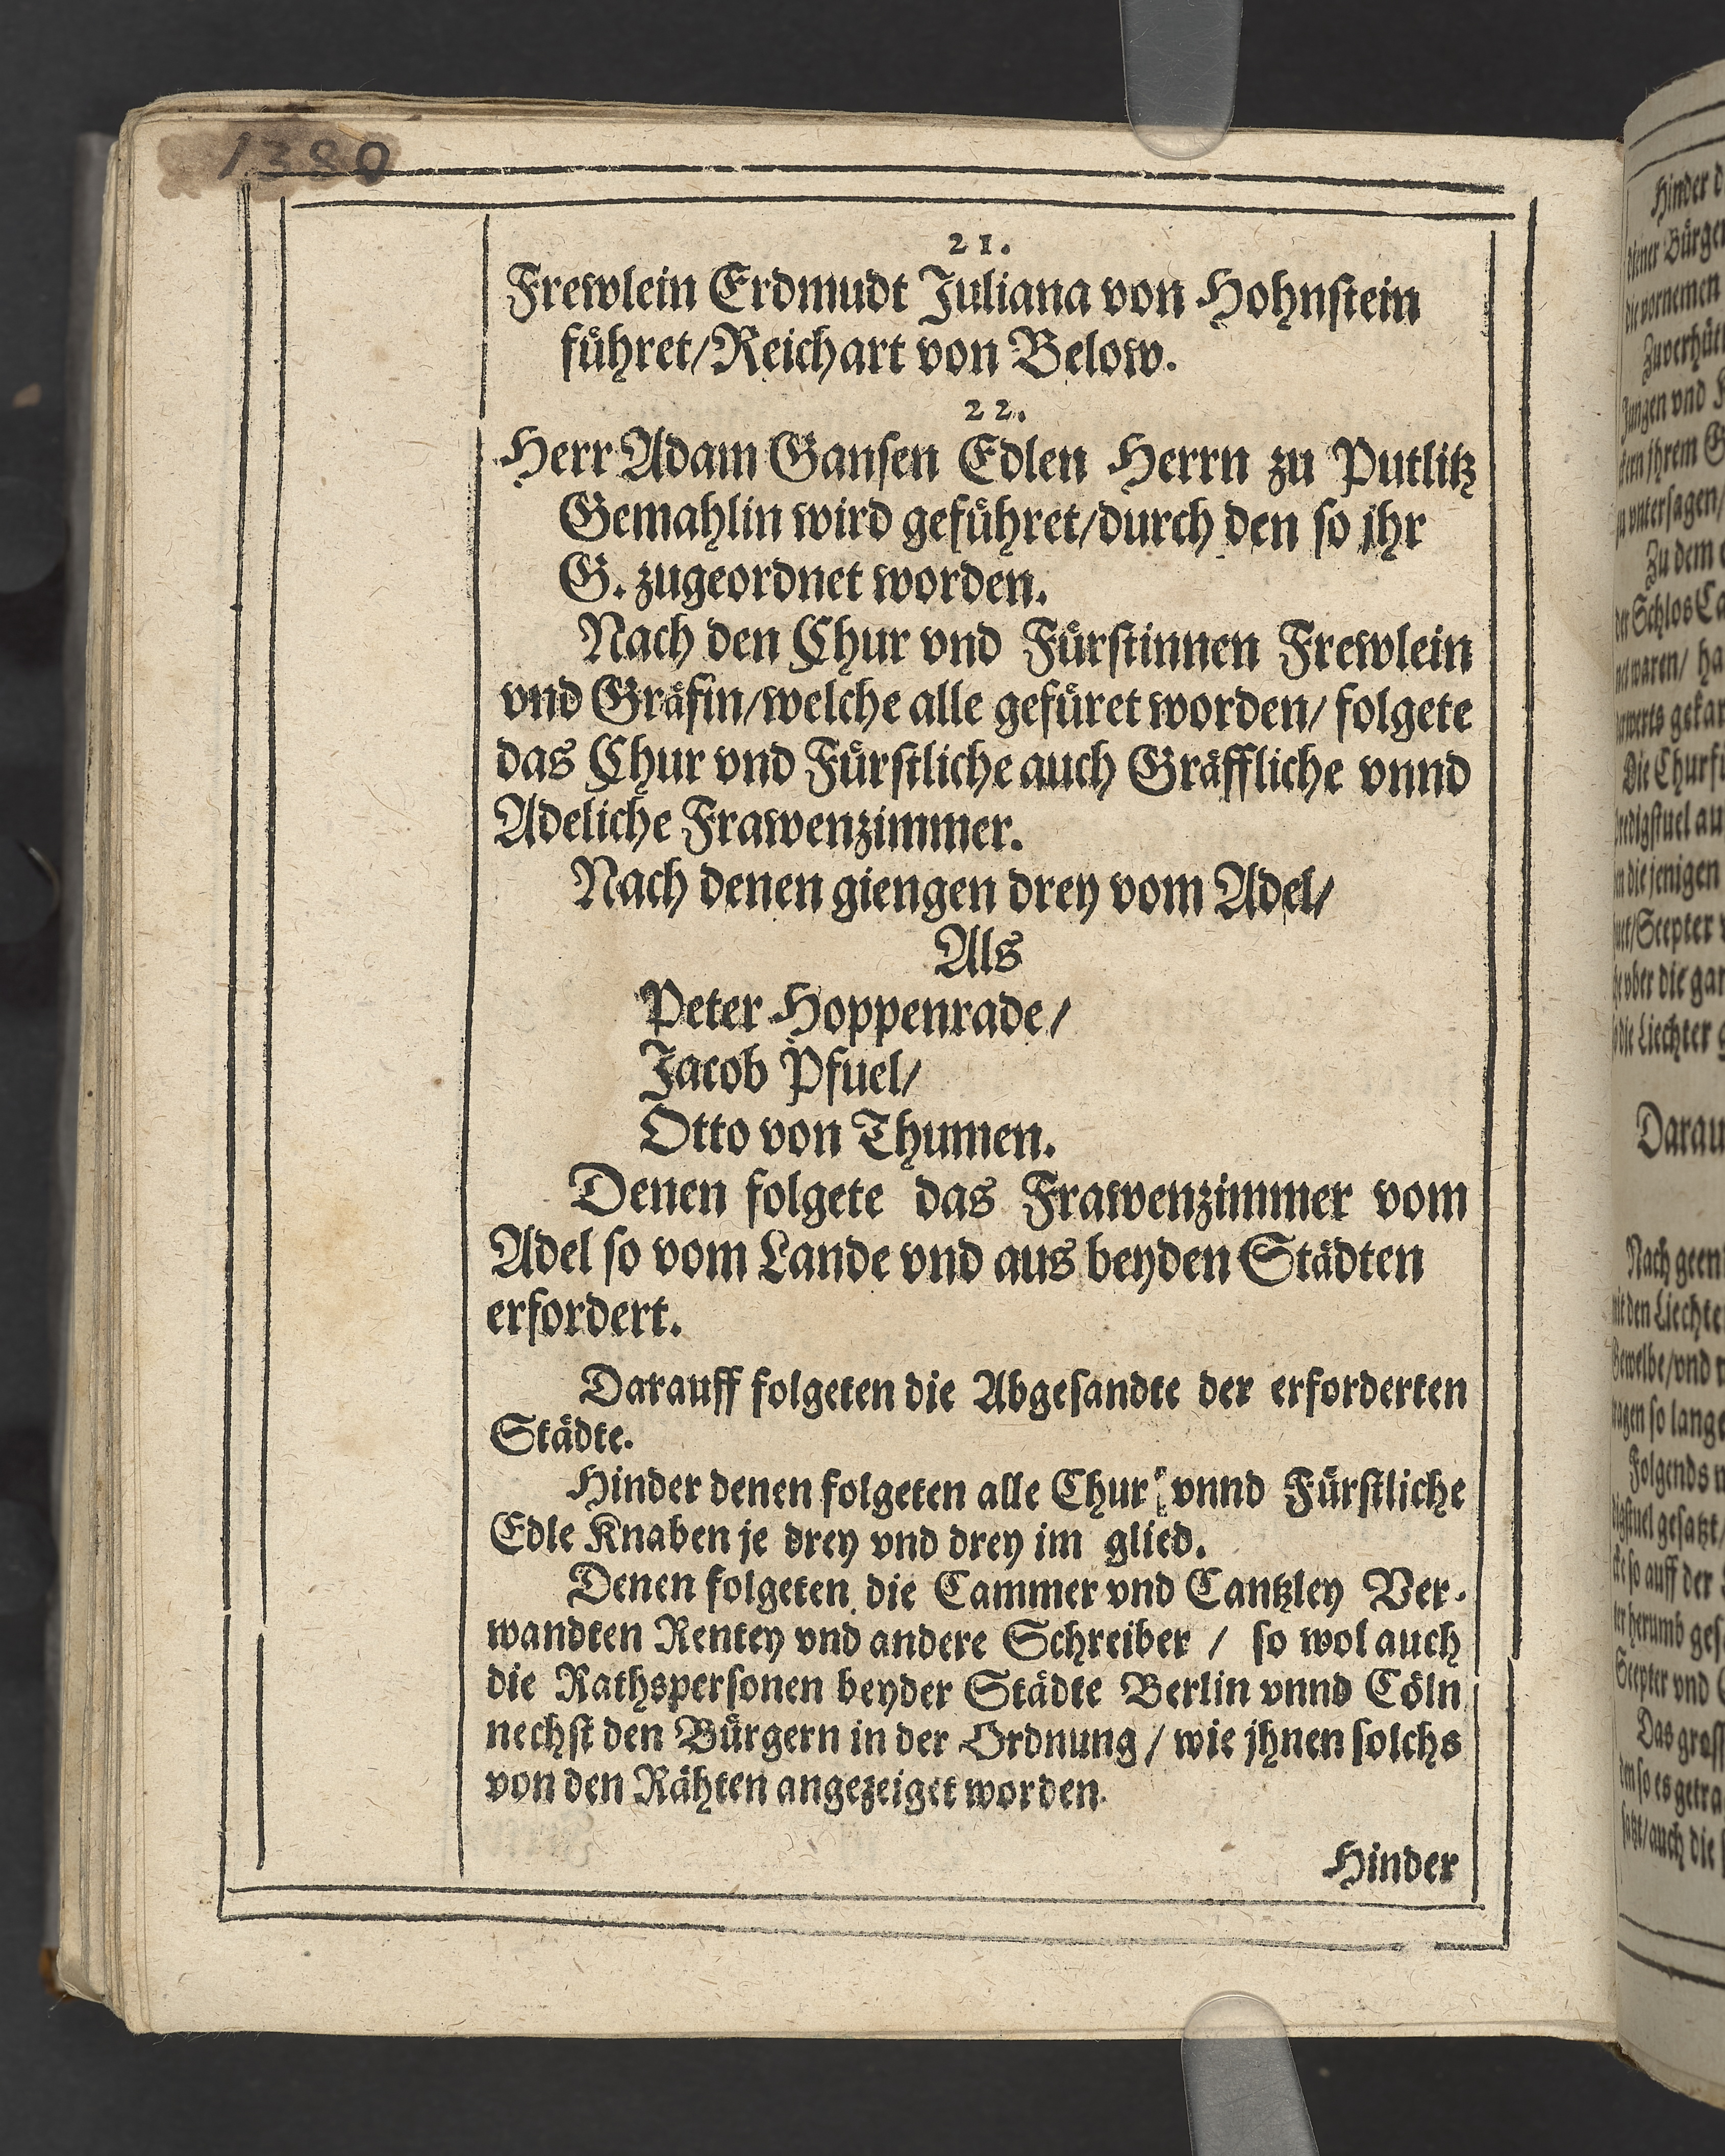 1380
21.
Frewlein Erdmudt Juliana von Hohnstein
führet/Reichart von Below.
22.
Herr Adam Gansen Edlen Herrn zu Putlitz
Gemahlin wird geführet/durch den so jhr
G. zugeordnet worden.
Nach den Chur vnd Fürstinnen Frewlein
vnd Gräfin/welche alle gefüret worden/ folgete
das Chur vnd Fürstliche auch Gräffliche vnnd
Adeliche Frawenzimmer.
Nach denen giengen drey vom Adel/
Als
Peter Hoppenrade/
Jacob Pfuel/
Otto von Thumen.
Denen folgete das Frawenzimmer vom
Adel so vom Lande vnd aus beyden Städten
erfordert.
Darauff folgeten die Abgesandte der erforderten
Städte.
Hinder denen folgeten alle Chur vnnd Fürstliche
Edle Knaben je drey vnd drey im glied.
Denen folgeten die Cammer vnd Cantzley Ver-
wandten Rentey vnd andere Schreiber / so wol auch
die Rathspersonen beyder Städte Berlin vnnd Cöln
nechst den Bürgern in der Ordnung / wie jhnen solchs
von den Rähten angezeiget worden.
Hinder
Hinder
vornemen
Jungen vnd
jhrem
vntersagen/
Zu dem
Schlos
waren/
Die
die jenigen
Scepter
vber die
die Liechter
Darau
Nach
den
vnd
so lange
Folgends
gesatzt/
so auff der
herumb
Scepter vnd
Das
so es
auch die